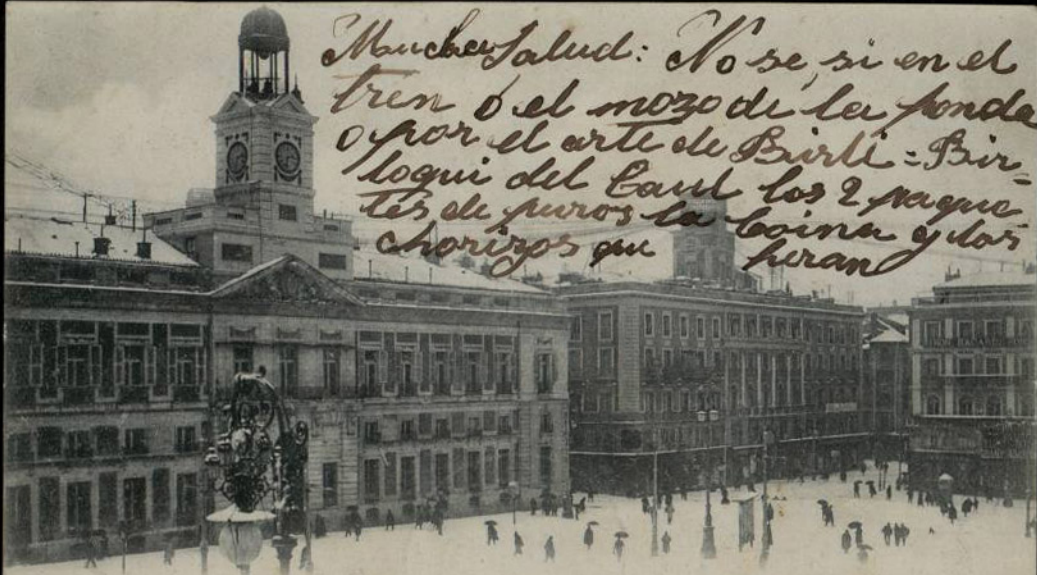 Mucha Salud: No se, si en el
tren ó el mozo de la fonda
o por el arte de Birli=Bir-
loqui del baul los 2 paque
tes de puros la boina y los
chorizos que